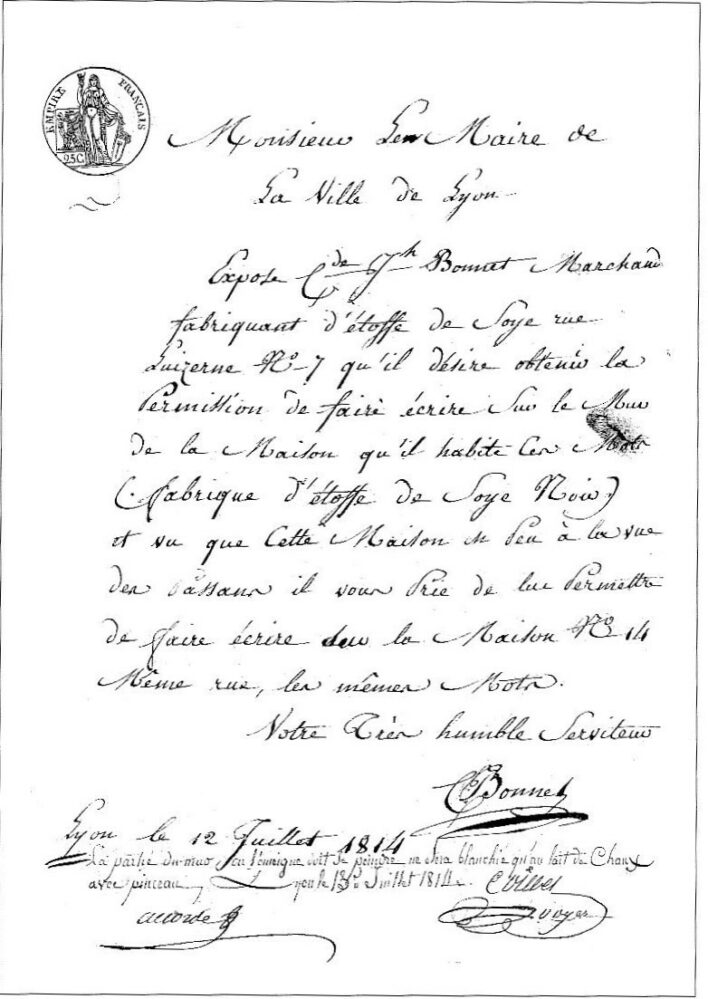 EMPIRE FRANÇAIS
25C
Monsieur Le Maire de
La Ville de Lyon
Expose Cde Jh Bonnet Marchand
fabriquant d'étoffe de Soye rue
Luizerne No 7 qu'il désire obtenir la
Permission de faire écrire Sur le Mur
de la Maison qu'il habite Ces Mots
(fabrique d'étoffe de Soye Noir)
et vu que Cette Maison est Peu à la vue
des Passans il vous Prie de lui Permettre
de faire écrire sur la Maison No 14
Même rue, les mêmes Mots.
Votre Très humble Serviteur
C Bonnet
Lyon le 12 Juillet 1814
La partie du mur, ou l'enseigne doit se peindre ne sera blanchie qu'au lait de Chaux
avec pinceau, Lyon le 13 Juillet 1814.
accordé
voyer